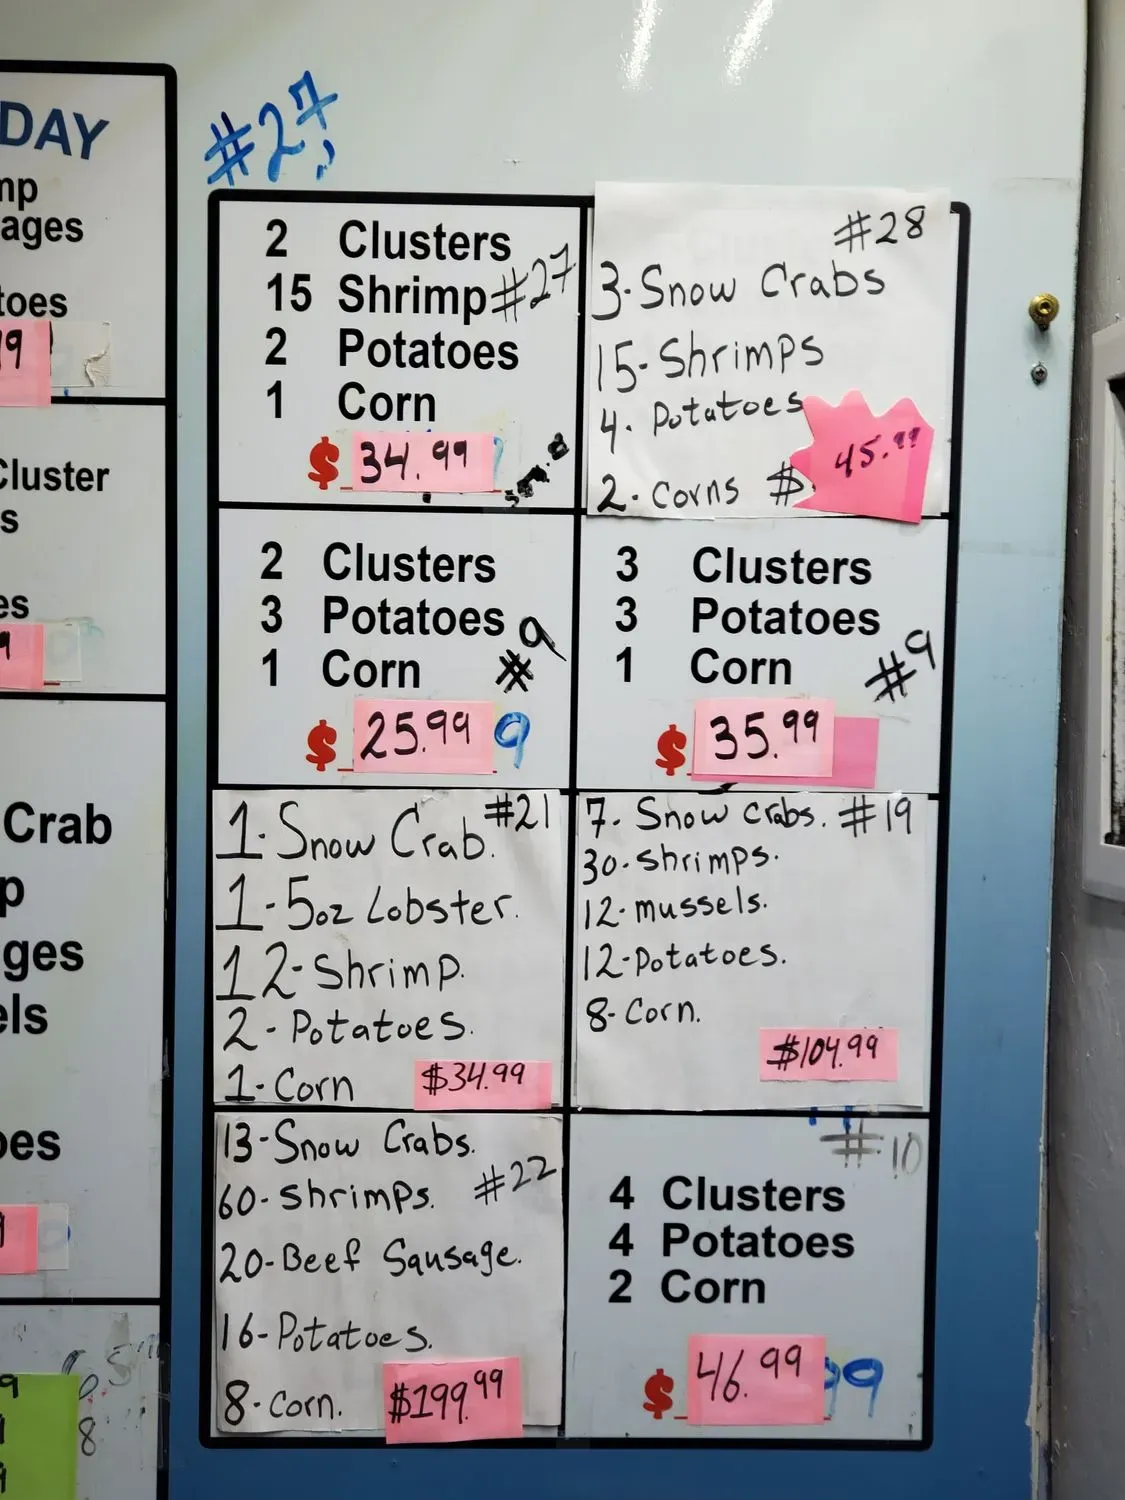 DAY
ages
toes
Cluster
Crab
#27
2 Clusters
15 Shrimp #27
2 Potatoes
1 Corn
$ 34.99
#28
3-Snow Crabs
15-Shrimps
4. Potatoes
2-Corns $ 45.99
2 Clusters
3 Potatoes
1 Corn #9
$ 25.99 9
3 Clusters
3 Potatoes
1 Corn #9
$ 35.99
1-Snow Crab. #21
1-5oz Lobster.
12-Shrimp.
2-Potatoes.
1-Corn $34.99
7. Snow crabs. #19
30-Shrimps.
12-mussels.
12-Potatoes.
8-Corn.
$104.99
13-Snow Crabs.
60-Shrimps. #22
20-Beef Sausage.
16-Potatoes.
8-Corn. $199.99
#10
4 Clusters
4 Potatoes
2 Corn
$ 46.99 99